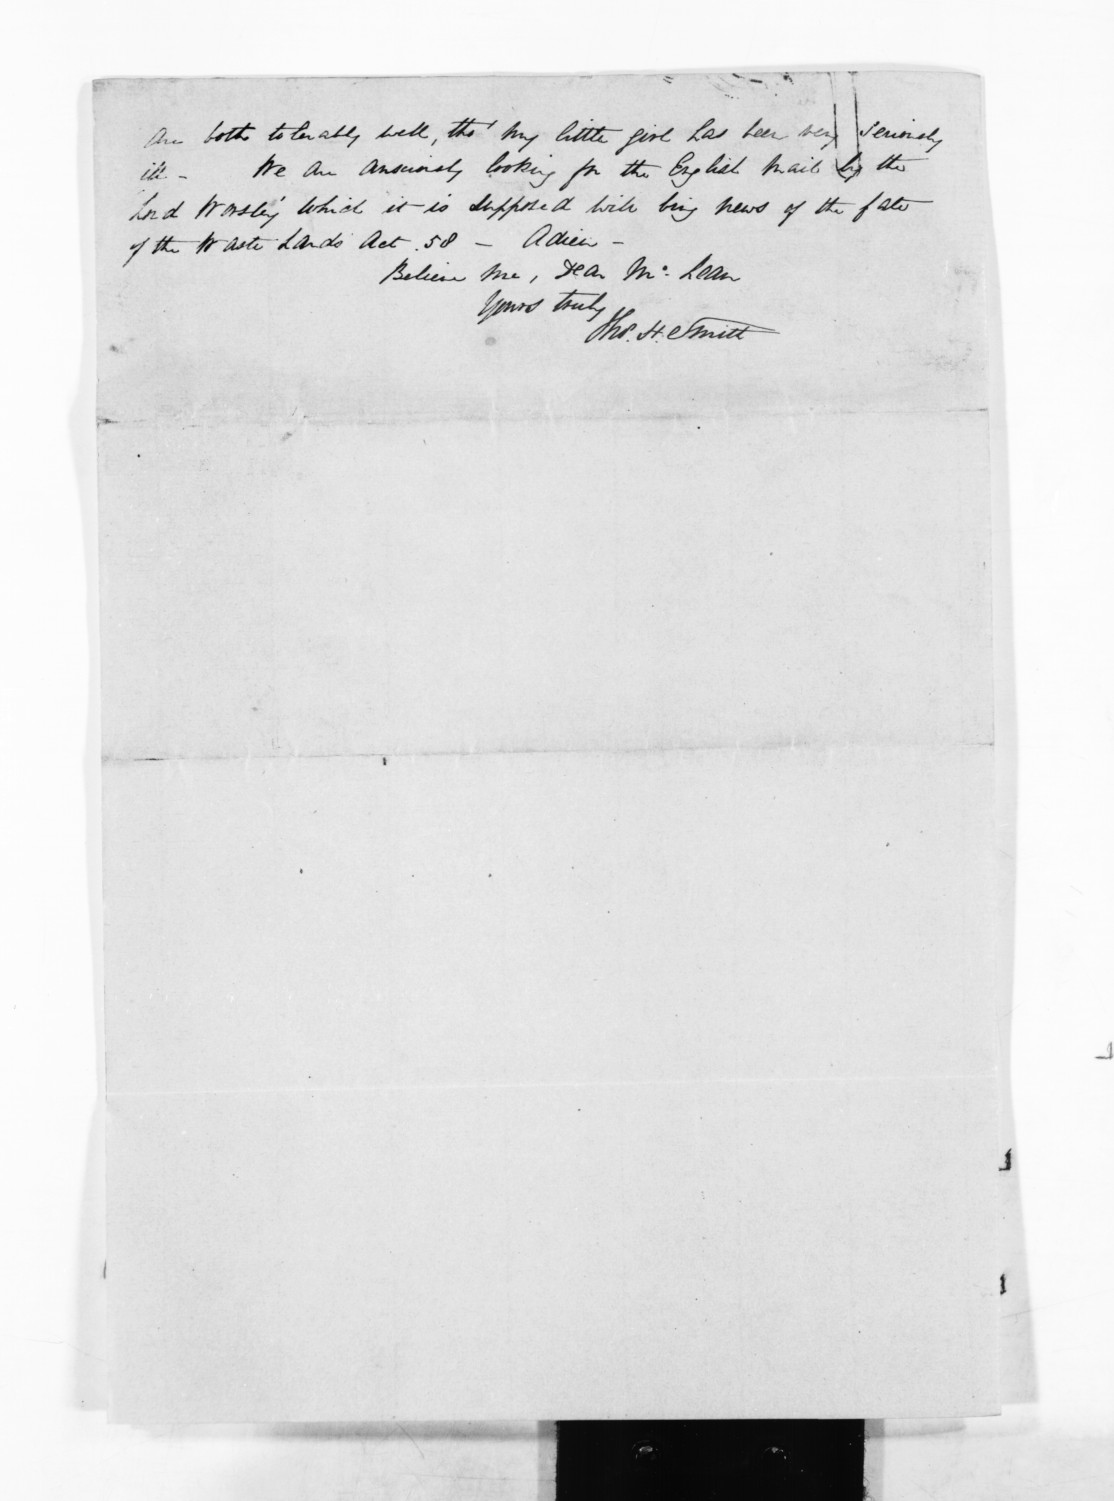 are both tolerably well, tho' my little girl has been very seriously
ill - We are anxiously looking for the English Mail by the
'Lord Worsley' which it is supposed will bring news of the fate
of the Waste Lands Act .58 - Adieu -
Believe me, Dear Mc. Lean
Yours truly
Tho. H. Smith